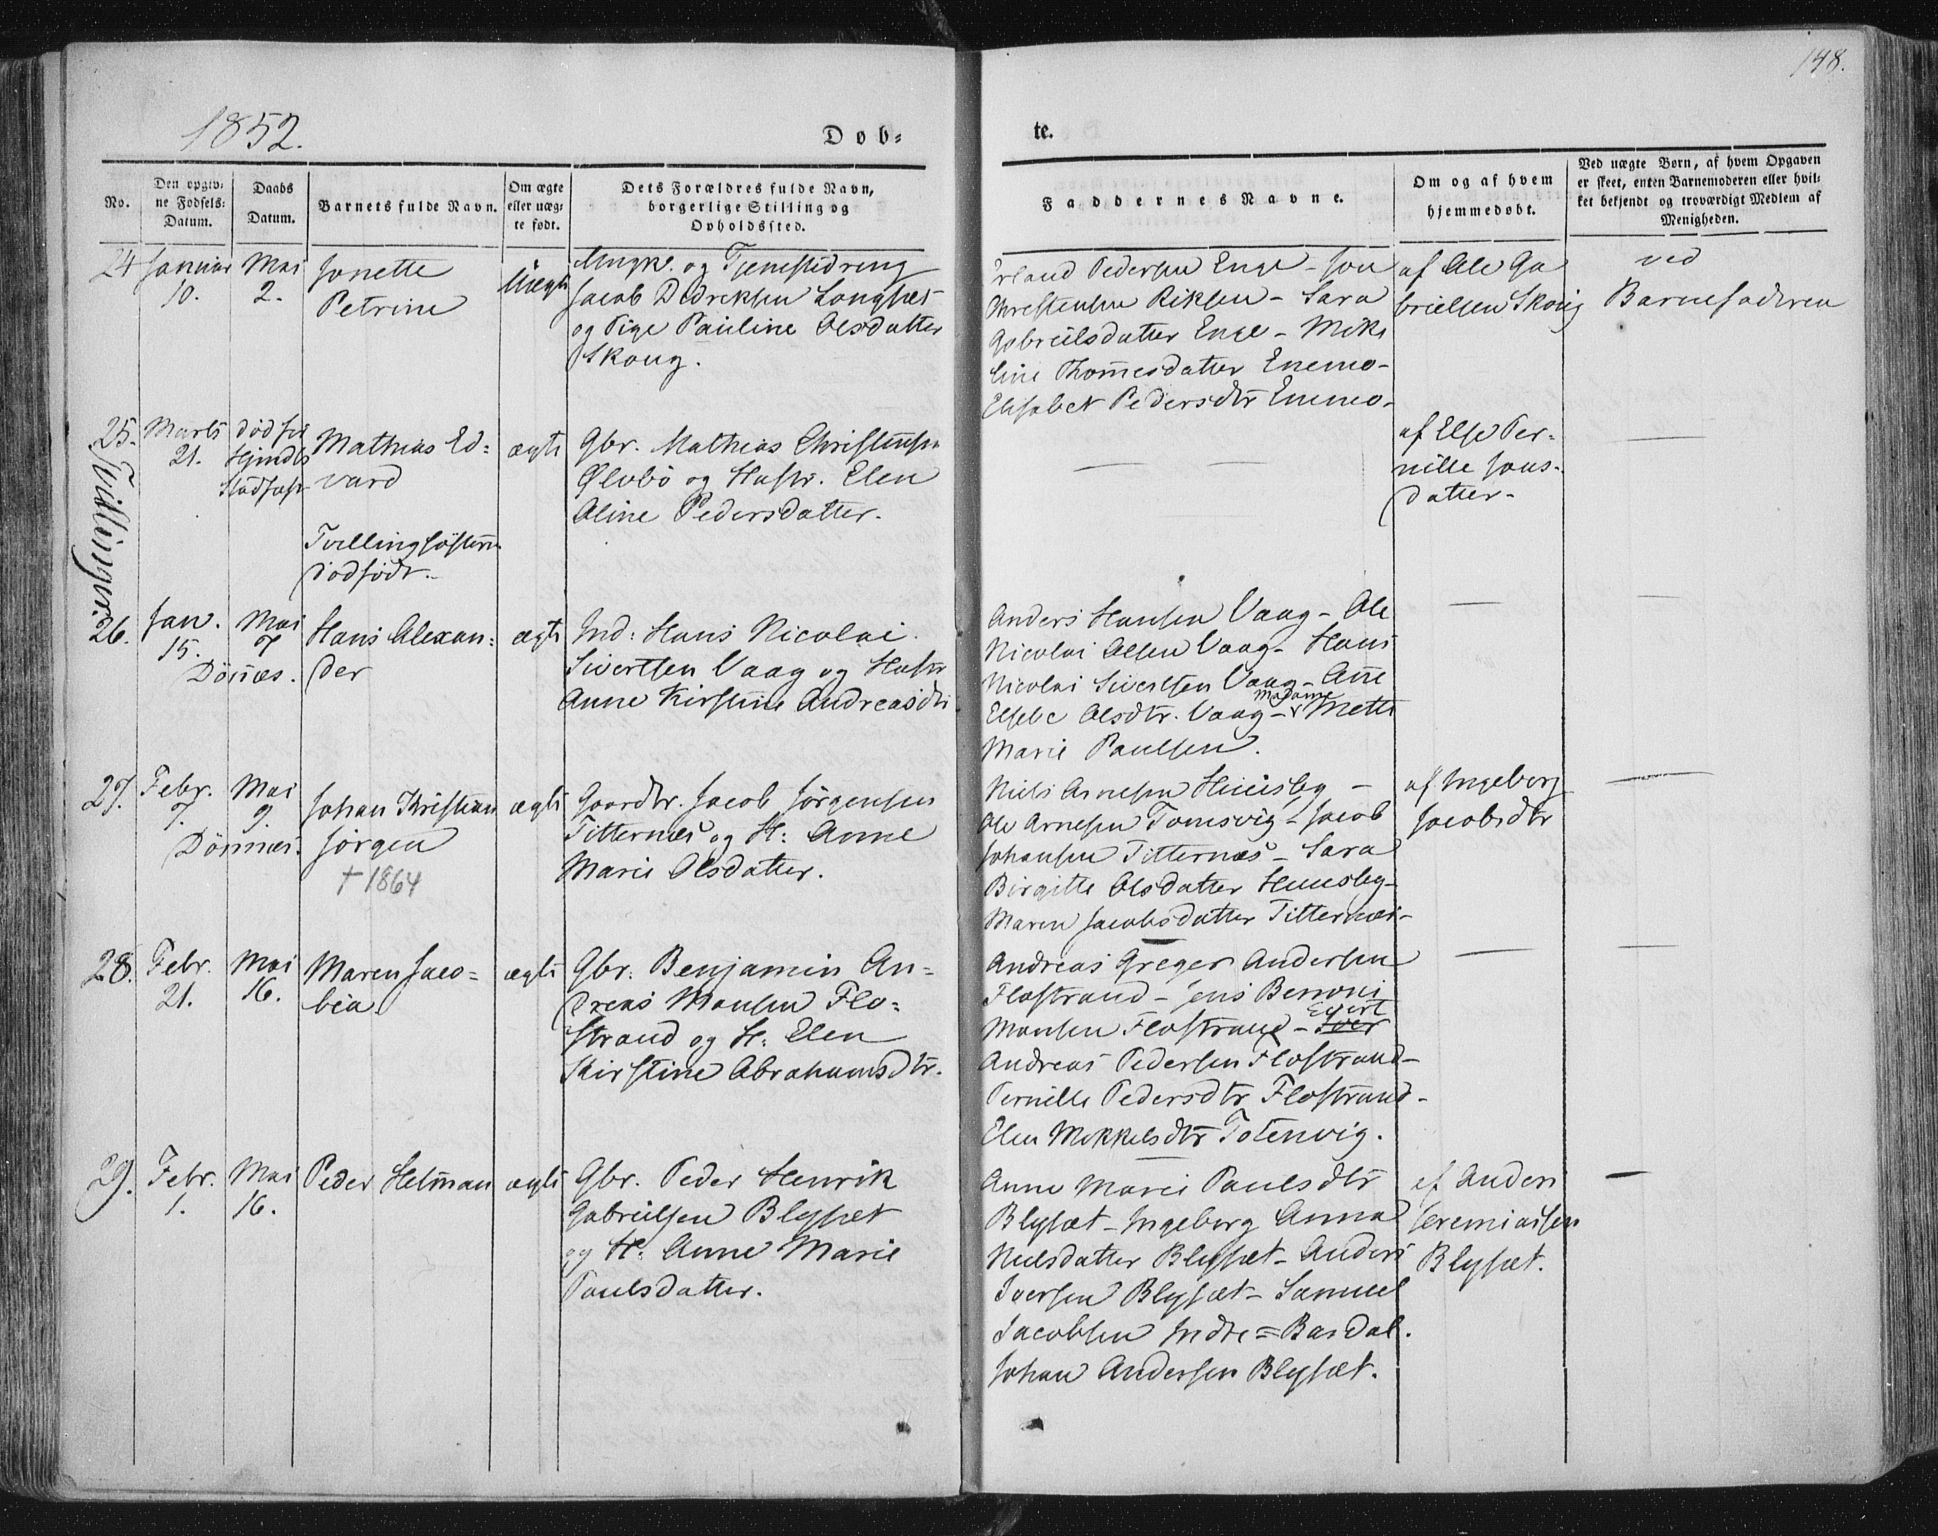 148.
1852.
Døb=
te.
No.
Den opgiv=
ne Fødsels=
Datum.
Daabs
Datum.
Barnets fulde Navn.
Om ægte
eller uæg=
te født.
Dets Forældres fulde Navn,
borgerlige Stilling og
Opholdssted.
Faddernes Navne.
Om og af hvem
hjemmedøbt.
Ved uægte Børn, af hvem Opgaven
er skeet, enten Barnemoderen eller hvil=
ket bekjendt og troværdigt Medlem af
Menigheden.
24
Januar
10.
Mai
2.
Jonette
Petrine
Uægte
Ungk. og Tjenestedreng
Jacob Didriksen Langset
og Pige Pauline Olsdatter
Skoug.
Erland Pedersen Enge - Jon
Christensen Riksen - Sara
Gabrielsdatter Enge - Mik
line Thomesdatter Enemo -
Elisabet Pedersdtr Enemo -
af Ole Ga
brielsen Skoug
ved
Barnefaderen
25.
Tvillinger
Marts
21.
død før
Hjemdb
Stadfæst
Mathias Ed=
vard
Tvillingsøsteren
dødfødt.
ægte
Gbr. Mathias Christensen
Ølvbø og Hustr. Elen
Oline Pedersdatter.
af Else Per-
nille Jons-
datter -
26.
Jan.
15.
Mai
7
Dønnæs.
Hans Alexan-
der
ægte
Ind: Hans Nicolai
Sivertsen Vaag og Hustr
Anne Kirstine Andreasdtr.
Anders Hansen Vaag - Ole
Nicolai Olsen Vaag - Hans
Nicolai Sivertsen Vaag - Ane
Elsebe Olsdtr. Vaag - Madame Mette
Marie Paulsen.
27.
Febr.
7.
Mai
9.
Dønnæs.
Johan Kristian
Jørgen
† 1864
ægte
Gaardbr. Jacob Jørgensen
Titternæs og H: Anne
Marie Olsdatter.
Niels Arnesen Huusby -
Ole Arnesen Tomsvig - Jacob
Johansen Titternæs - Sara
Birgitte Olsdatter Huusby -
Maren Jacobsdatter Titternæs -
af Ingeborg
Jacobsdtr
28.
Febr.
21.
Mai
16.
Maren Jaco=
bea.
ægte
Gbr. Benjamin An=
dreas Monsen Flo=
strand og H: Elen
Kirstine Abrahamsdtr.
Andreas Greger Andersen
Flostrand - Jens Benoni
Monsen Flostrand - Iver Evert
Andreas Pedersen Flostrand -
Pernille Pedersdtr Flostrand -
Elen Mikkelsdtr Totenvig.
29.
Febr.
1.
Mai
16.
Peder Helman
ægte
Gbr. Peder Henrik
Gabrielsen Blysæt
og H: Anne Marie
Paulsdatter.
Anne Marie Paulsdtr
Blysæt - Ingeborg Anna
Nielsdatter Blysæt - Anders
Iversen Blysæt - Samuel
Jacobsen Indre = Bardal.
Johan Andersen Blysæt.
af Anders
Jeremiassen
Blysæt.